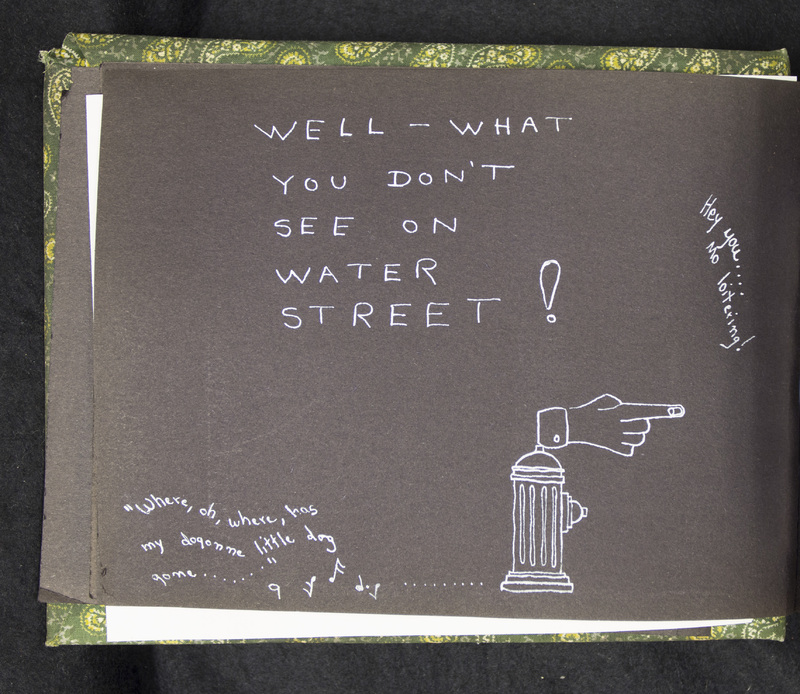 WELL — WHAT
YOU DON'T
SEE ON
WATER
STREET !
Hey you....:
No loitering!
"Where, oh, where, has
my dogonne little dog
gone......."